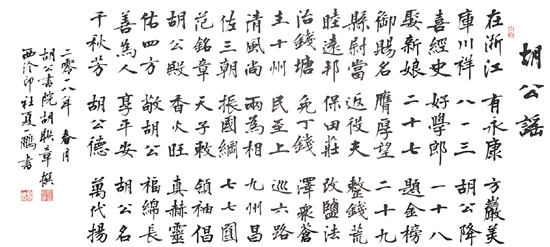 胡公謠
在浙江 有永康 方巖美
庫川祥 八一三 胡公降
喜經史 好學郎 一十八
娶新娘 二十七 題金榜
御賜名 膺厚望 二十九
縣尉當 近役夫 整錢荒
睦遠邦 保田莊 改鹽法
治錢塘 免丁錢 澤衆蒼
主十州 民至上 巡六路
清風尚 兩為相 九州昌
佐三朝 振國綱 七七圓
范銘章 天子敕 領袖倡
胡公殿 香火旺 真赫靈
佑四方 敬胡公 福綿長
善為人 享平安 胡公名
千秋芳 胡公德 萬代揚
二零一八年 春月
胡公書院胡聯章撰
西泠印社夏一鵬書